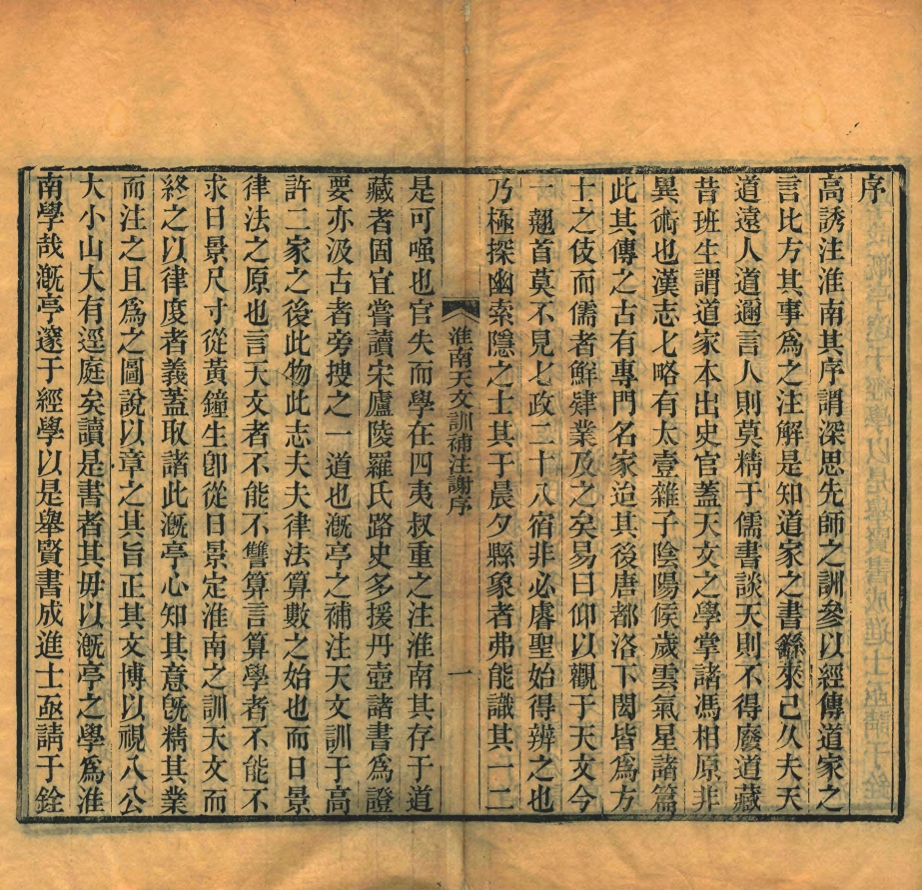 序
高誘注淮南其序謂深思先師之訓參以經傳道家之
言比方其事爲之注解是知道家之書繇來已久夫天
道遠人道邇言人則莫精于儒書談天則不得廢道藏
昔班生謂道家本出史官蓋天文之學掌諸馮相原非
異術也漢志七略有太壹雜子陰陽候歲雲氣星諸篇
此其傳之古有專門名家迨其後唐都洛下閎皆爲方
士之伎而儒者鮮肄業及之矣易曰仰以觀于天文今
一翹首莫不見七政二十八宿非必睿聖始得辨之也
乃極探幽索隱之士其于晨夕縣象者弗能識其一二
淮南天文訓補注謝序
一
是可嘅也官失而學在四夷叔重之注淮南其存于道
藏者固宜嘗讀宋廬陵羅氏路史多援丹壺諸書爲證
要亦汲古者旁搜之一道也漑亭之補注天文訓于高
許二家之後此物此志夫夫律法算數之始也而日景
律法之原也言天文者不能不讐算言算學者不能不
求日景尺寸從黃鐘生卽從日景定淮南之訓天文而
終之以律度者義蓋取諸此漑亭心知其意旣精其業
而注之且爲之圖說以章之其旨正其文博以視八公
大小山大有逕庭矣讀是書者其毋以漑亭之學爲淮
南學哉漑亭邃于經學以是舉賢書成進士亟請于銓